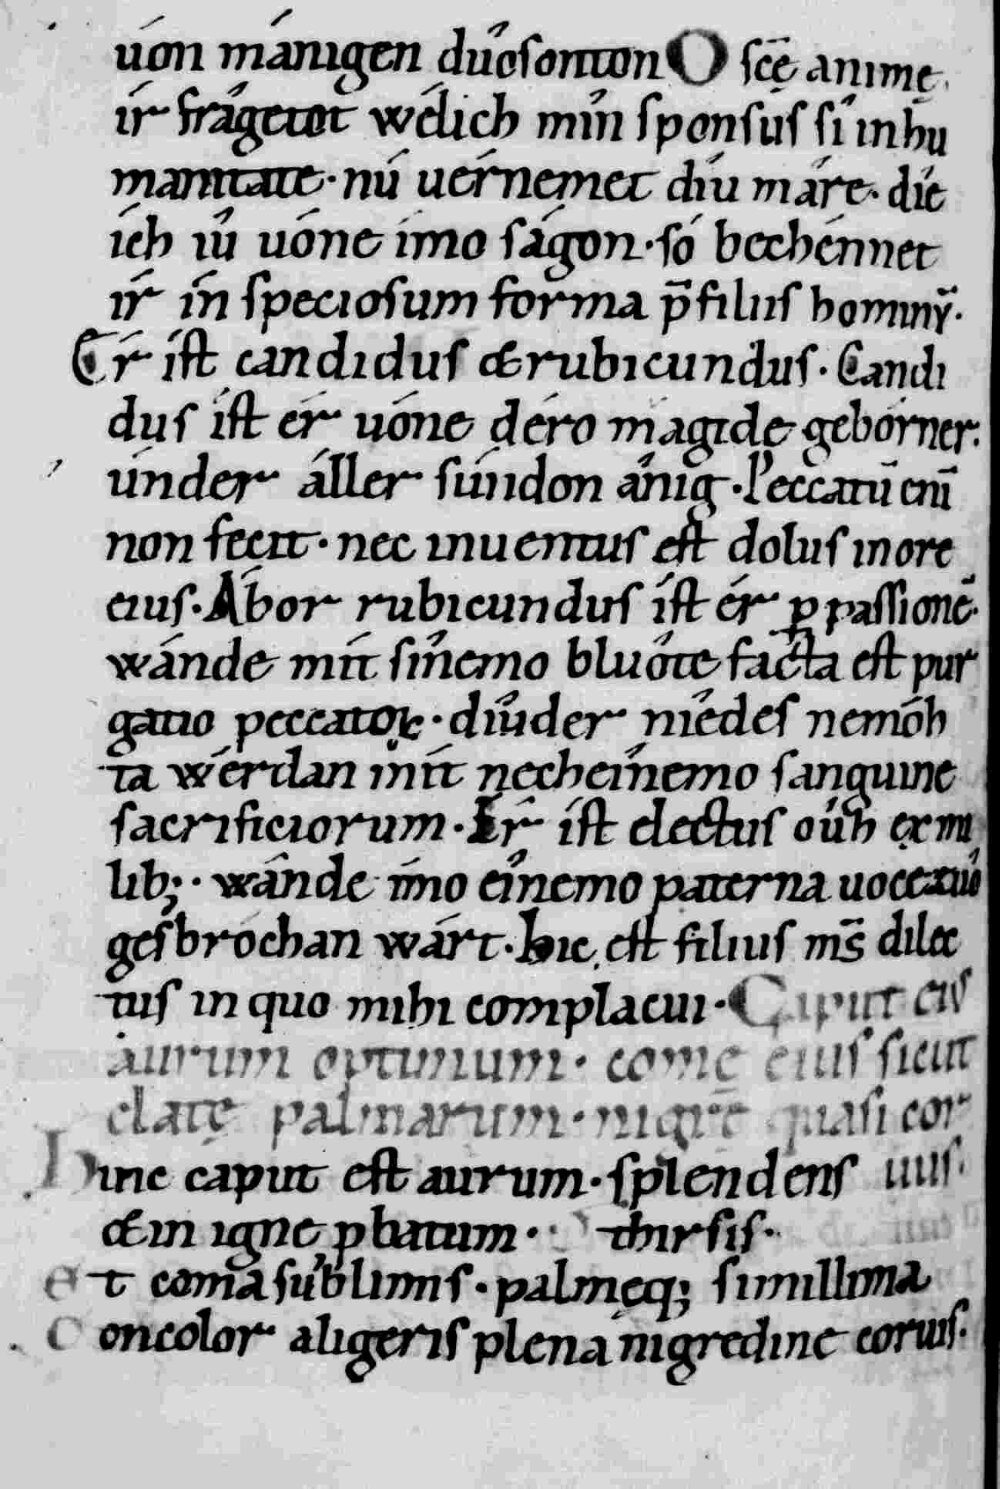 uón mánigen dûosonton O scē animę.
ír frâgetot wélich mîn sponsus sî in hu
manitate· nú uérnemet díu máre· díe
ích íu̓ uóne ímo ságon· só bechénnet
ír ín speciosum forma p̄ filiis hominū·
Ér íst candidus & rubicundus· Candi
dus íst ér uóne déro mágide gebórner·
únder áller súndon ânig· Peccatū enī
non fecit· nec inuentus est dolus in ore
eius· Ábor rubicundus íst ér p̱ passionē·
wánde mít sînemo blûote facta est pur
gatio peccatoꝝ· díu der níedes nemóh
ta wérdan mít necheínemo sanguine
sacrificiorum· Ér íst electus oûh ex mi
lib;· wánde ímo eînemo paterna uoce zûo
gesbróchan wárt· hic est filius m̄s dilec
tus in quo mihi complacui· Caput eius
aurum optimum· comę eius sicut
elatę palmarum· nigrę quasi cor
uus·
Huic caput est aurum· splendens
& in igne ꝓbatum· thirsis·
et coma sublimis· palmęq; simillima
Concolor aligeris plena nigredine coruis·